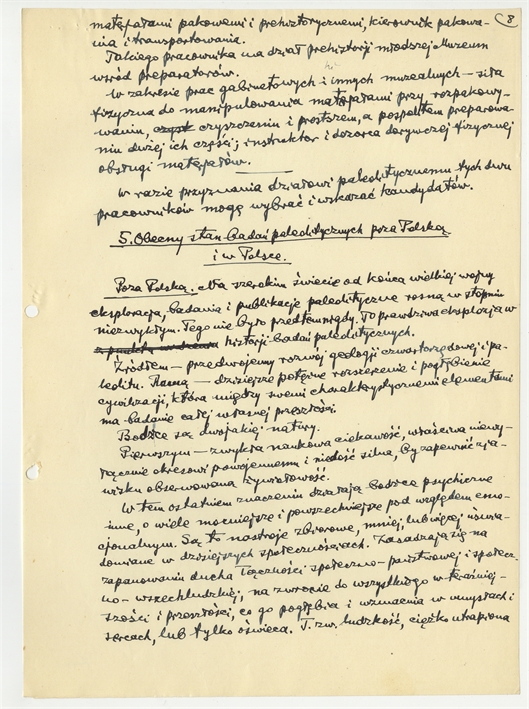 8
materjałami pakowemi i prehistorycznemi, kierownik pakowa-
nia i transportowania.
Takiego pracownika ma dział prehistorji młodszej Muzeum
wśród preparatorów.
W zakresie prac gabinetowych i innych muzealnych – siła
fizyczna do manipulowania materjałami przy rozpakowy-
waniu, czyszczeniu i prostszem, a pospolitem preparowa-
niu dużej ich części; instruktor i dozorca dorywczej fizycznej
obsługi materjałów.
W razie przyznania działowi paleolitycznemu tych dwu
pracowników mogę wybrać i wskazać kandydatów.
5. Obecny stan badań paleolitycznych poza Polską
i w Polsce.
Poza Polską. Na szerokim świecie od końca wielkiej wojny
eksploracja, badania i publikacje paleolityczne rosną w stopniu
niezwykłym. Tego nie było przedtem nigdy. To prawdziwa eksplozja w
historji badań paleolitycznych.
Źródłem – przedwojenny rozwój geologji czwartorzędowej i pa-
leolitu. – dzisiejsze potężne rozszerzenie i pogłębienie
cywilizacji, która między swemi charakterystycznemi elementami
ma badanie całej własnej przeszłości.
Bodźce są dwojakiej natury.
Pierwszym – zwykła naukowa ciekawość, właściwa niewy-
łącznie okresowi powojennemu i niedość silna, by zapewnić zja-
wisku obserwowaną żywiołowość.
W tem ostatniem znaczeniu działają bodźce psychiczne
inne, o wiele mocniejsze i powszechniejsze pod względem emo-
cjonalnym. Są to nastroje zbiorowe, mniej, lub więcej uświa-
domione w dzisiejszych społecznościach. Zasadzają się na
zapanowaniu ducha łączności społeczno-państwowej i społecz-
no-wszechludzkiej, na zwrocie do wszystkiego w teraźniej-
szości i przeszłości, co go pogłębia i wzmacnia w umysłach i
sercach, lub tylko oświeca. T. zw. ludzkość, ciężko utrapiona